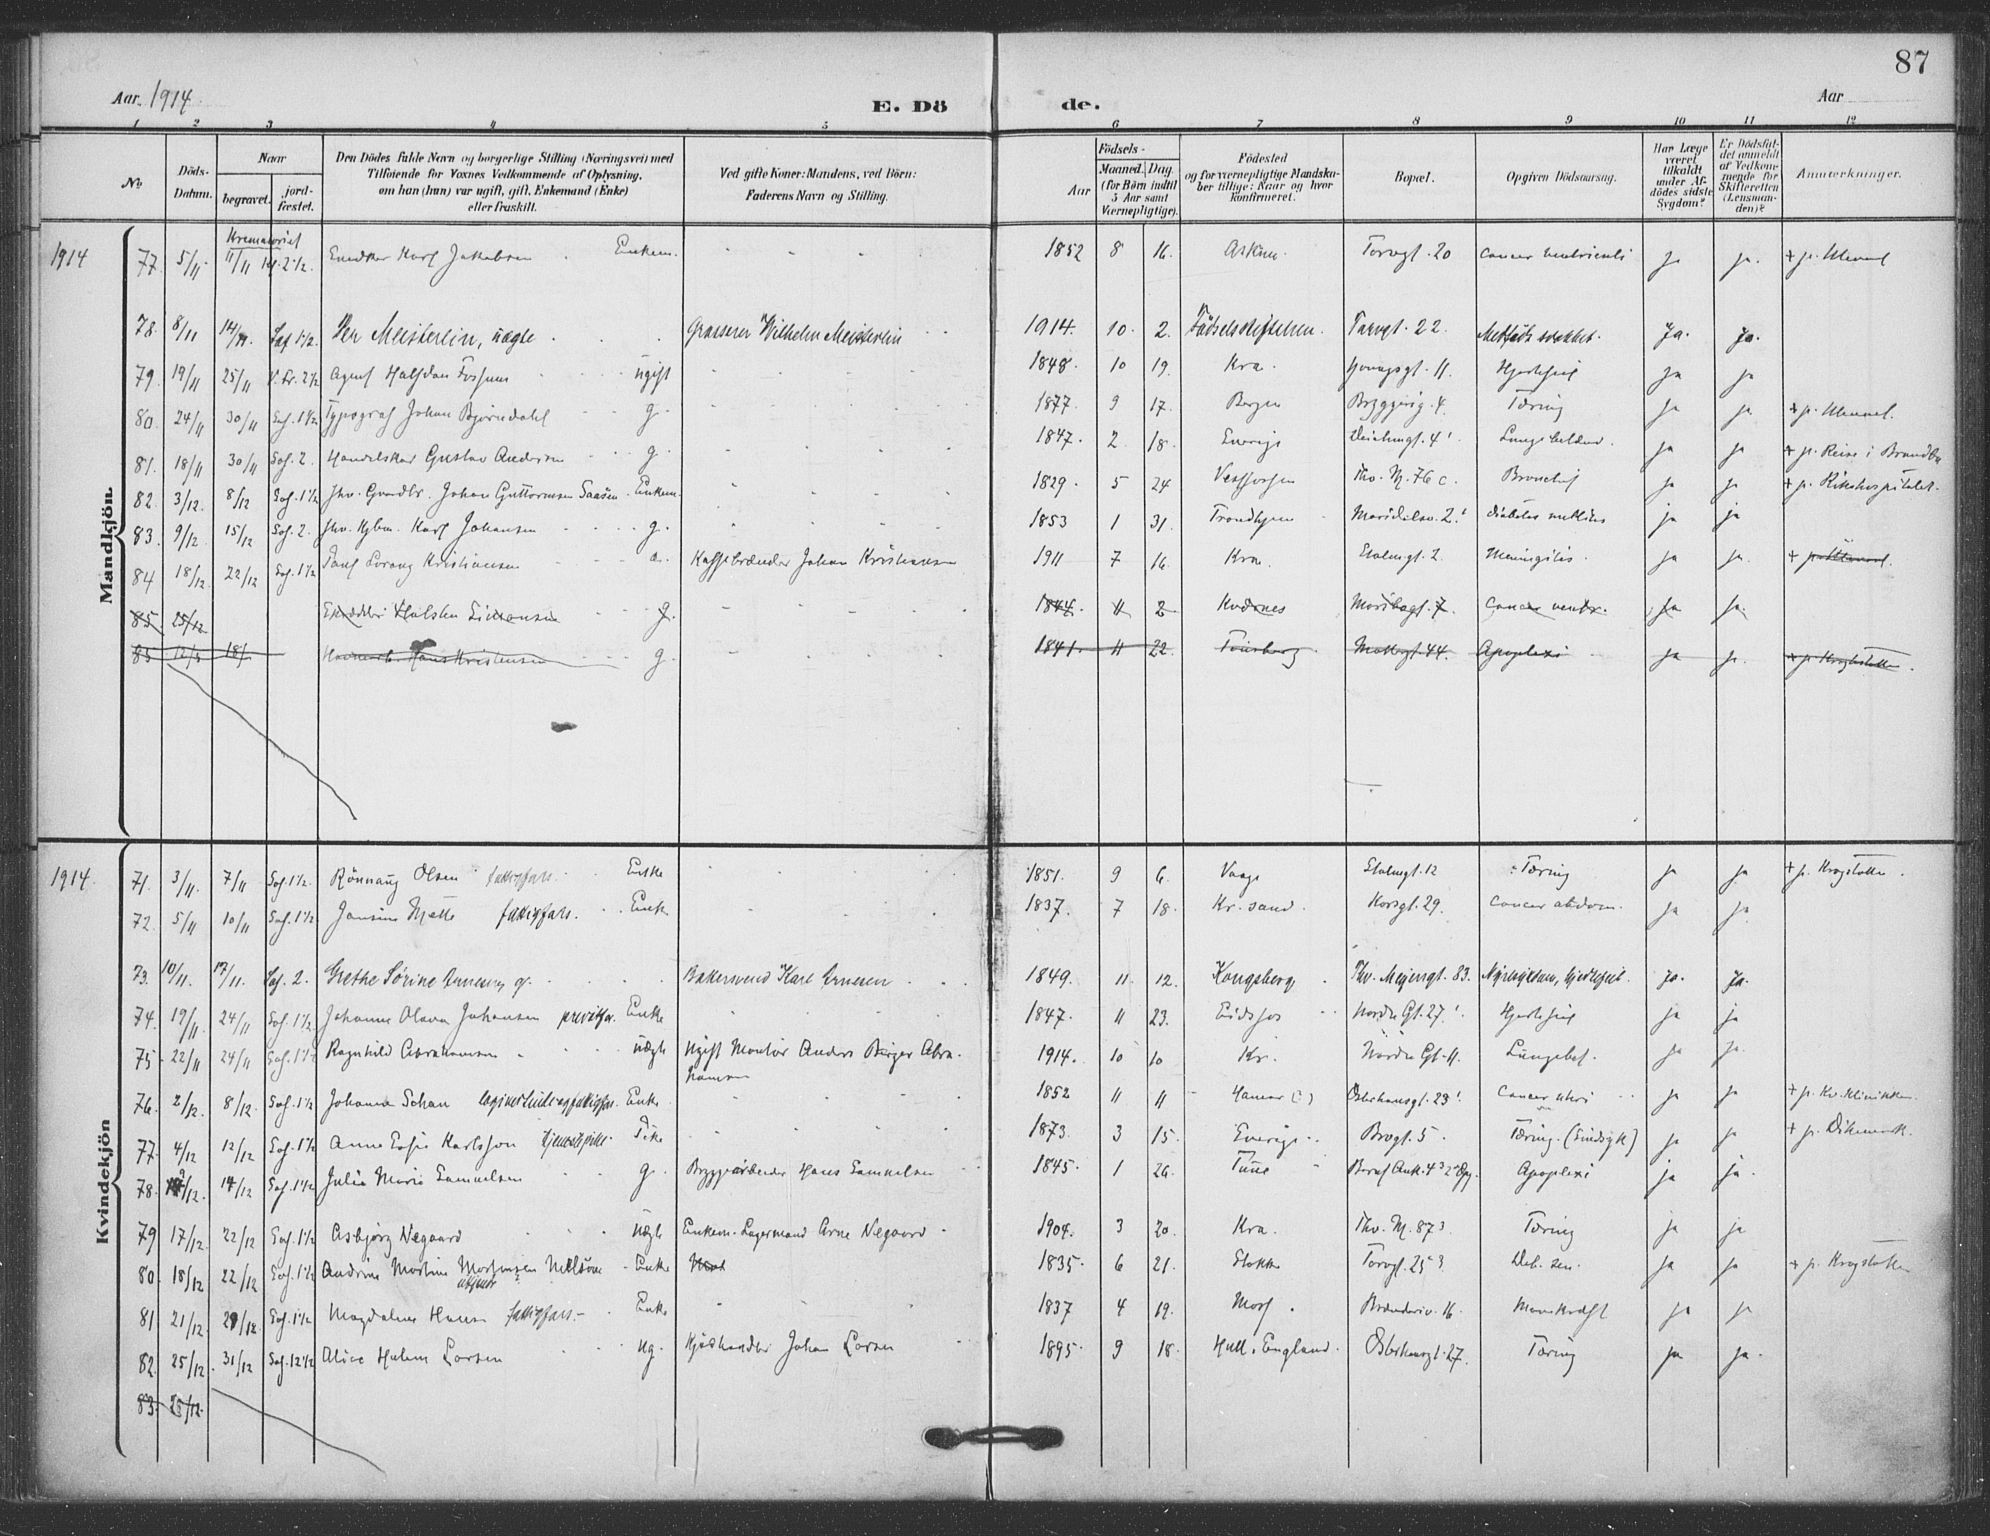 87
Aar. 1914
E. Dö de.
Aar
1 2 3 4 5 6 7 8 9 10 11 12
No
Döds-Datum.
Naar
begravet.
jord-fæstet.
Den Dödes fulde Navn og borgerlige Stilling (Næringsvei) med
Tilföiende for Voxnes Vedkommende af Oplysning,
om han (hun) var ugift, gift, Enkemand (Enke)
eller fraskilt.
Ved gifte Koner: Mandens, ved Börn:
Faderens Navn og Stilling.
Födsels-
Aar
Maaned. Dag.
(for Börn indtil
5 Aar samt
Værnepligtige).
Födested
og for værnepligtige Mandska-
ber tillige: Naar og hvor
konfirmeret.
Bopæl.
Opgiven Dödsaarsag.
Har Læge
været
tilkaldt
under Af-
dödes sidste
Sygdom?
Er Dödsfal-
det anmeldt
af Vedkom-
mende for
Skifteretten
(Lensman-
den)?
Anmærkninger.
Mandkjön.
1914 77. 5/11. Krematoriet 11/11 Karl Jakobsen Enkem. 1852 8 16. Askim. Torvgt. 20 cancer ventriculi ja ja.
78. 8/11 14/11. Sag 1½. Per Meisterlin, uægte. Grosserer Wilhelm Meisterlin 1914. 10. 2. Fødselsstiftelsen. Torvgt. 22. Medfødt svakhet. Ja. Ja.
79. 19/11 25/11 V. Fr. 2½ Agent Halfdan Fossum ugift 1848. 10 19. Kra. Youngsgt. 11. Hjertefeil ja ja
80. 24/11 30/11 Sof. 1½ Typograf Johan Bjørndahl g. 1877. 9 17. Bergen Bryggerig. 4 Tæring ja ja
81. 18/11 30/11 Sof. 2. Handelskar Gustav Andersen g. 1847. 2 18. Sverige 4 ja ja + p. Reise i
82. 3/12. 8/12 Sof. 1½ Johan Guttormsen Saasen Enkem. 1829 5 24 Thv. M. 76 c. Bronchit ja ja + p. Rikshospitalet.
83. 9/12 15/12 Sof. 2. Karl Johansen g. 1853 1 31. Trondhjem Maridalsv. 2 diabetes mellitus ja ja
84 18/12. 22/12 Sof. 1½ Kristiansen Kaffebrænder Johan Kristiansen 1911 7 16. Kra. Stolmgt. 2. Meningitis. ja ja.
85 25/12 Simensen g. 1844. 11 2 Kvernes 7. cancer ventr. ja ja.
85 12/ 18/ Hans Kristensen g. 1841. 11 22. Tønsberg. Møllergt. 44. Apoplexi ja ja. + p. Krogstøtten.
Kvindekjön
1914. 71. 3/11. 7/11 Sof. 1½. Rønnaug Olsen fattigfors. Enke 1851. 9 6. Vaage Stolmgt. 12 Tæring ja ja + p. Krogstøtten.
72. 5/11 10/11 Sof. 1½ Jansine Mette fattigfors. Enke 1837. 7 18. Kr. sand. Korsgt. 29. cancer abdom. ja ja
73. 10/11. 17/11. Sof. 2. Grethe Sørine Arnesen g. Bakersvend Karl Arnesen 1849. 11 12. Kongsberg Thv. Meyersgt. 83. Nyresygdom, hjertefeil ja. Ja.
74. 19/11 24/11 Sof. 1½ Johanne Olava Johansen privatfor. Enke 1847. 11 23. Eidsfos Nordre Gt. 27 Hjertefeil ja ja
75 22/11 24/11 Sof. 1½ Ragnhild Abrahamsen uægte Ugift Montør Anders Birger Abra-
hamsen 1914. 10 10 Kr. Nordre Gt. 11. Lungebet. ja ja.
76. 2/12 8/12. Sof. 1½ Johanna Schau Enke. 1852 11 11 Hamar (?) Osterhausgt. 23 cancer uteri ja ja + p. Kv. klinikken.
77. 4/12 12/12 Sof. 1½ Anna Sofie Karlsson Pike 1873. 3 15. Sverige Brogt. 5. Tæring. (Sindsyk) ja ja + p. Dikemark.
78. 9/12 14/12 Sof. 1½ Julie Marie Samuelsen g. Bryggearbeider Hans Samuelsen 1845. 1 26. Tune Apoplexi ja ja.
79 17/12. 22/12 Sof. 1½ Asbjørg Negaard uægte Enkem. Lagermand Arne Negaard 1904. 3 20. Kra. Thv. M. 87 Tæring ja ja
80 18/12 22/12 Sof. 1½ Andrine Martine Mortensen Enke 1835. 6 21. Stokke Torvgt. 25 Deb. sen. ja ja + p. Krogstøtten
81 21/12. 29/12 Sof. 1½ Magdalene Hansen fattigfors. Enke 1837 4 19. Mors. 16. Marekræft ja ja
82. 25/12. 31/12 Sof. 12½ Alice Helene Larsen ug. Kjøbhandler Johan Larsen 1895. 9 18. Hull. England. Osterhausgt. 27. Tæring ja ja.
83. 28/12.